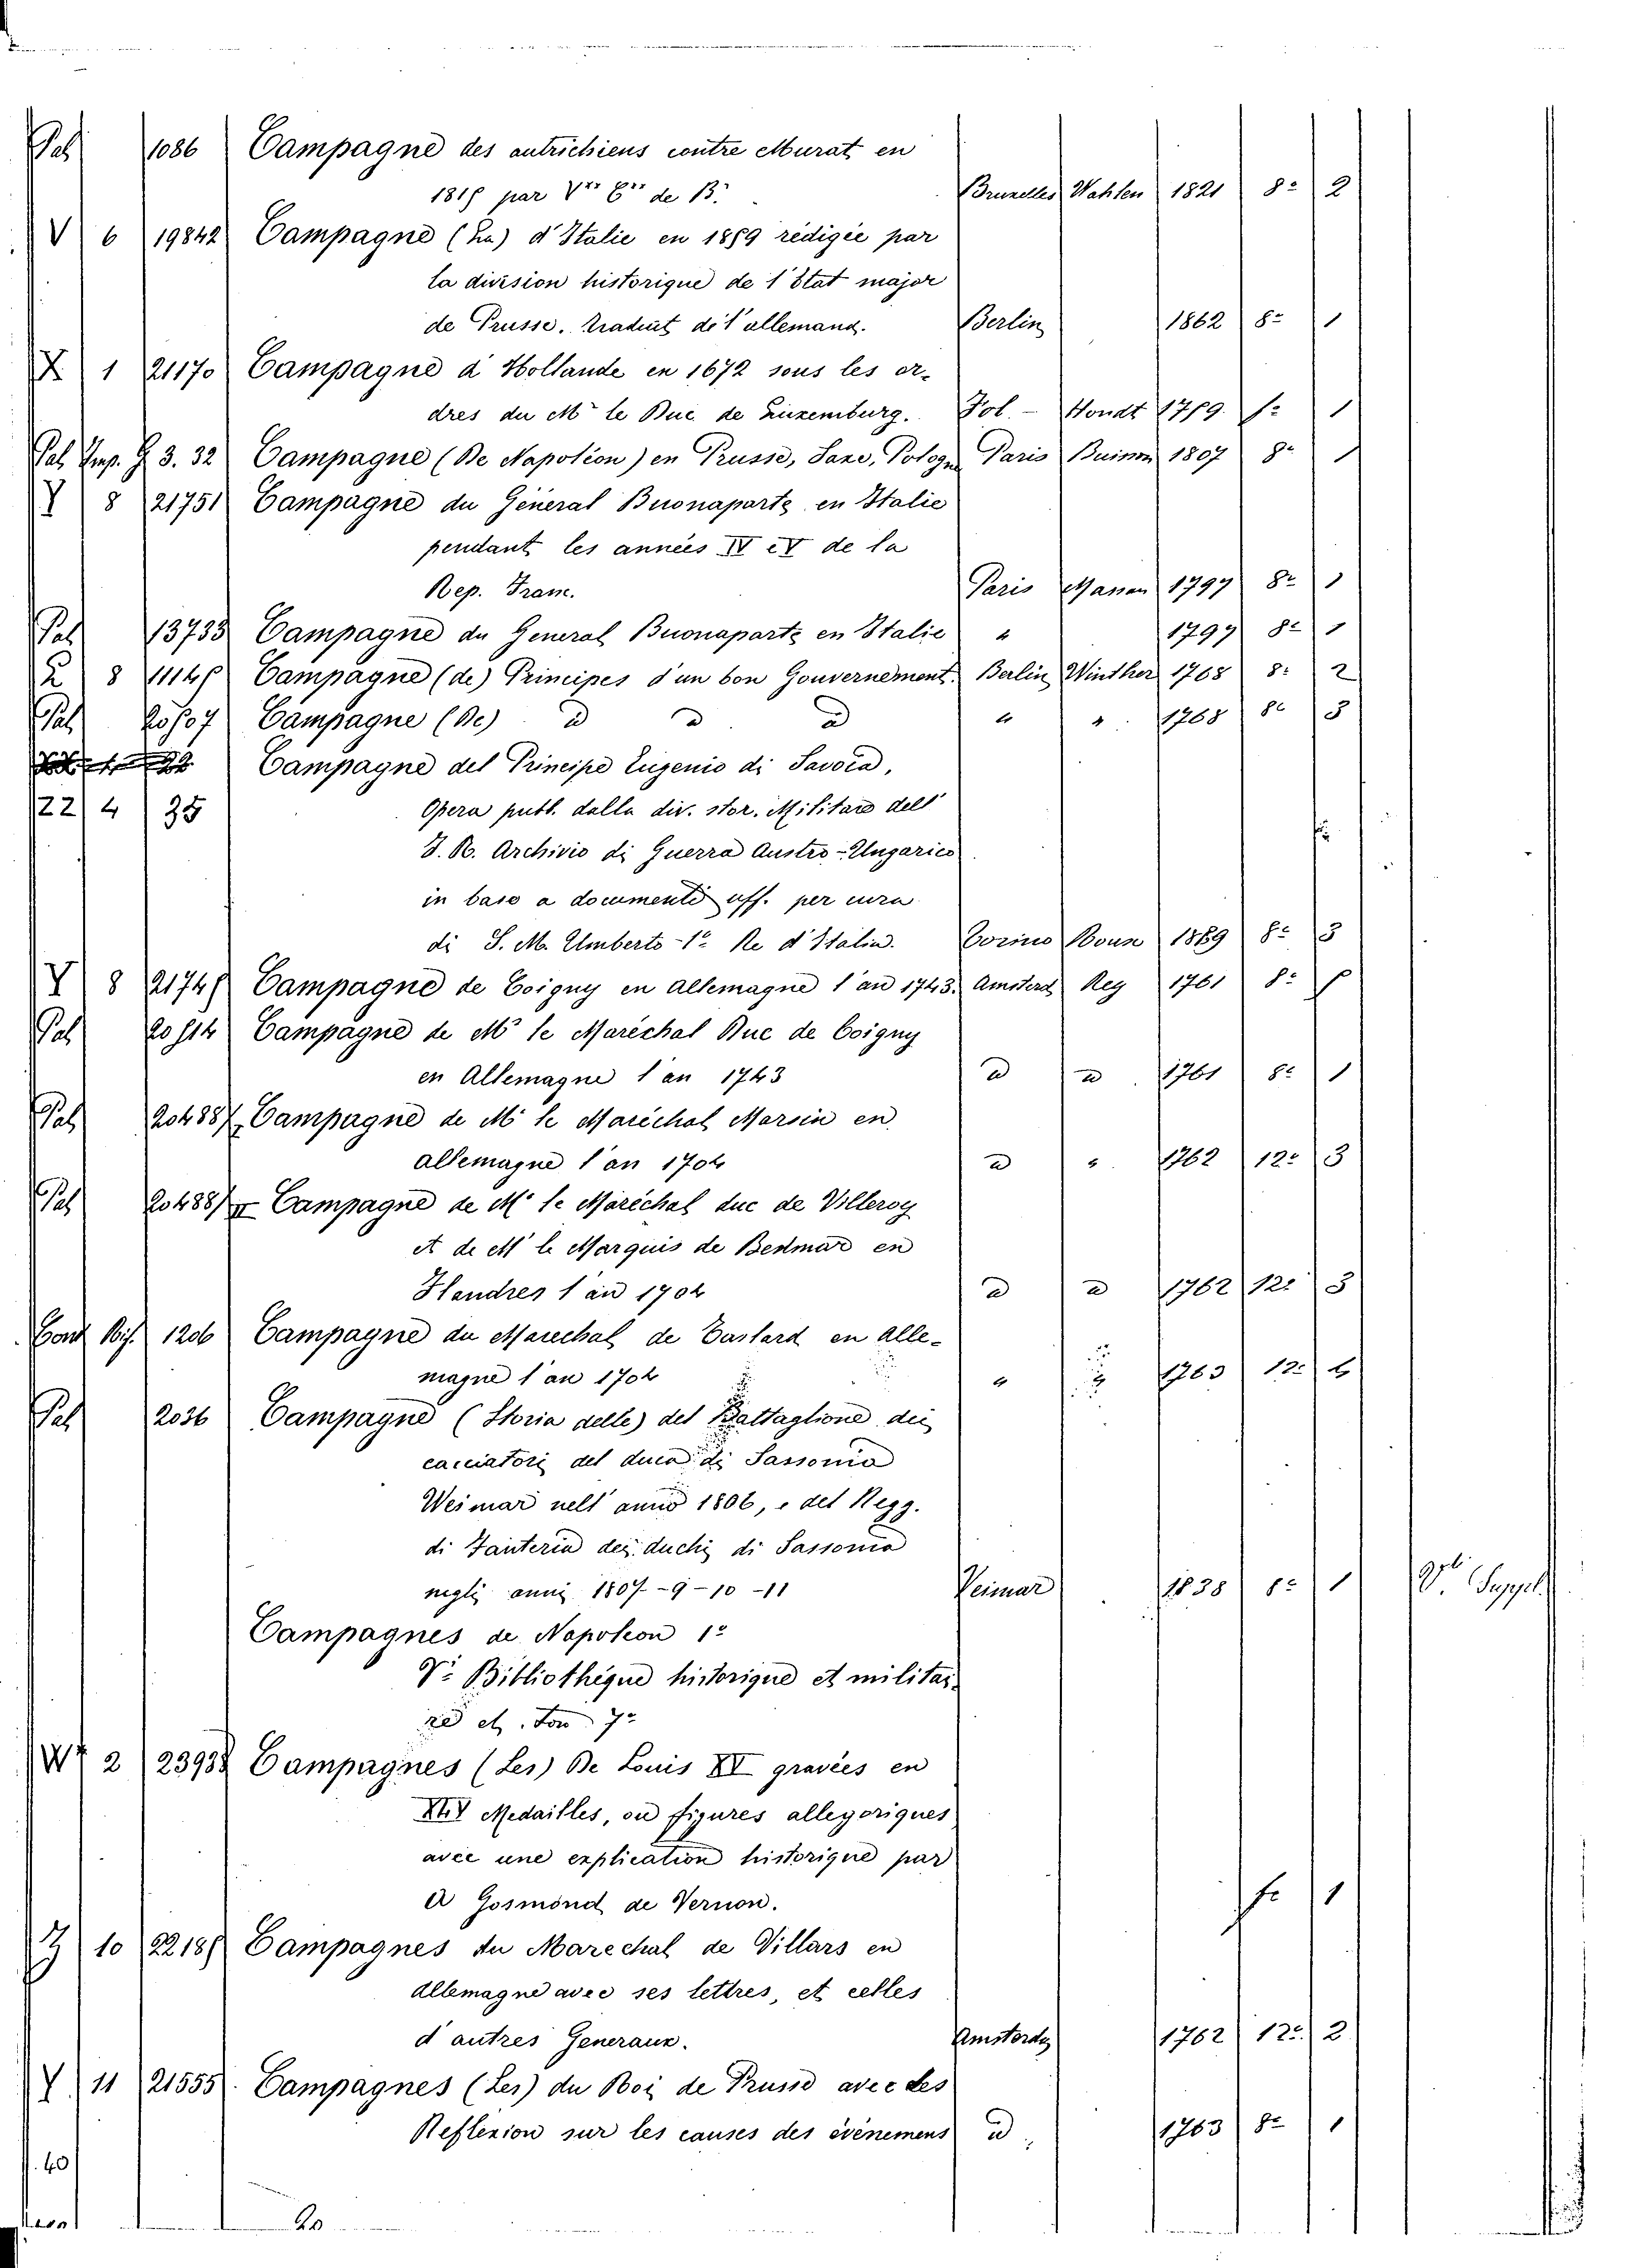 Pal 1086 Campagne des autrichiens contre Murat en
1815 par V.te C.te de B. Bruxelles Wahlen 1821 8° 2
V 6 19842 Campagne (La) d'Italie en 1859 rédigée par
la division historique de l'Etat major
de Prusse. Traduit de l'allemand. Berlin 1862 8° 1
X 1 21170 Campagne d'Hollande en 1672 sous les or-
dres du Mr le Duc de Luxemburg. Fol. - Hondt 1759. f° 1
Pal. Imp. G 3. 32 Campagne (De Napoléon) en Prusse, Saxe, Pologne Paris Buisson 1807 8° 1
Y 8 21751 Campagne du Géneral Buonaparte en Italie
pendant les années IV et V de la
Rep. Franc. Paris 1797 8° 1
Pal 13733 Campagne du General Buonaparte en Italie " 1797 8° 1
8 11145 Campagne (de) Principes d'un bon Gouvernement. Berlin Winther 1768 8° 2
Pal 20507 Campagne (De) d d d " " 1768 8° 3
Campagne del Principe Eugenio di Savoia,
22 4 35 Opera pubb. dalla div. stor. Militare dell'
I. R. Archivio di Guerra Austro-Ungarico
in base a documenti uff. per cura
di S. M. Umberto 1° Re d'Italia. Torino Roux 1889 8° 3
Y 8 21745 Campagne de Coigny en Allemagne l'an 1743. Amsterd Rey 1761 8° 5
Pal 20514 Campagne de Mr le Maréchal Duc de Coigny
en Allemagne l'an 1743 d d 1761 8° 1
Pal 20488/I Campagne de Mr le Maréchal Marsin en
Allemagne l'an 1704 d " 1762 12° 3
Pal 20488/II Campagne de Mr le Maréchal duc de Villeroy
et de Mr le Marquis de Bedmar en
Flandres l'an 1704 d d 1762 12° 3
Cont Rif. 1206 Campagne du Marechal de Tastard en Alle-
magne l'an 1704 " " 1763 12° 4
Pal 2036 Campagne (Storia delle) del Battaglione dei
cacciatori del duca di Sassonia
Weimar nell'anno 1806, e del Regg.
di Fanteria dei duchi di Sassonia
negli anni 1807-9-10-11 Veimar 1838 8° 1 V. Suppl.
Campagnes de Napoléon 1°
V: Bibliothèque historique et militai-
re et. Tom 7°
W 2 23938 Campagnes (Les) De Louis XV gravées en
Medailles, ou figures allegoriques
avec une explication historique par
A Gosmond de Vernon. f° 1
10 22185 Campagnes du Marechal de Villars en
Allemagne avec ses lettres, et celles
d'autres Generaux. Amsterda 1762 12° 2
Y 11 21555 Campagnes (Les) du Roi de Prusse avec des
Reflexion sur les causes des évenemens d 1763 8° 1
40
20